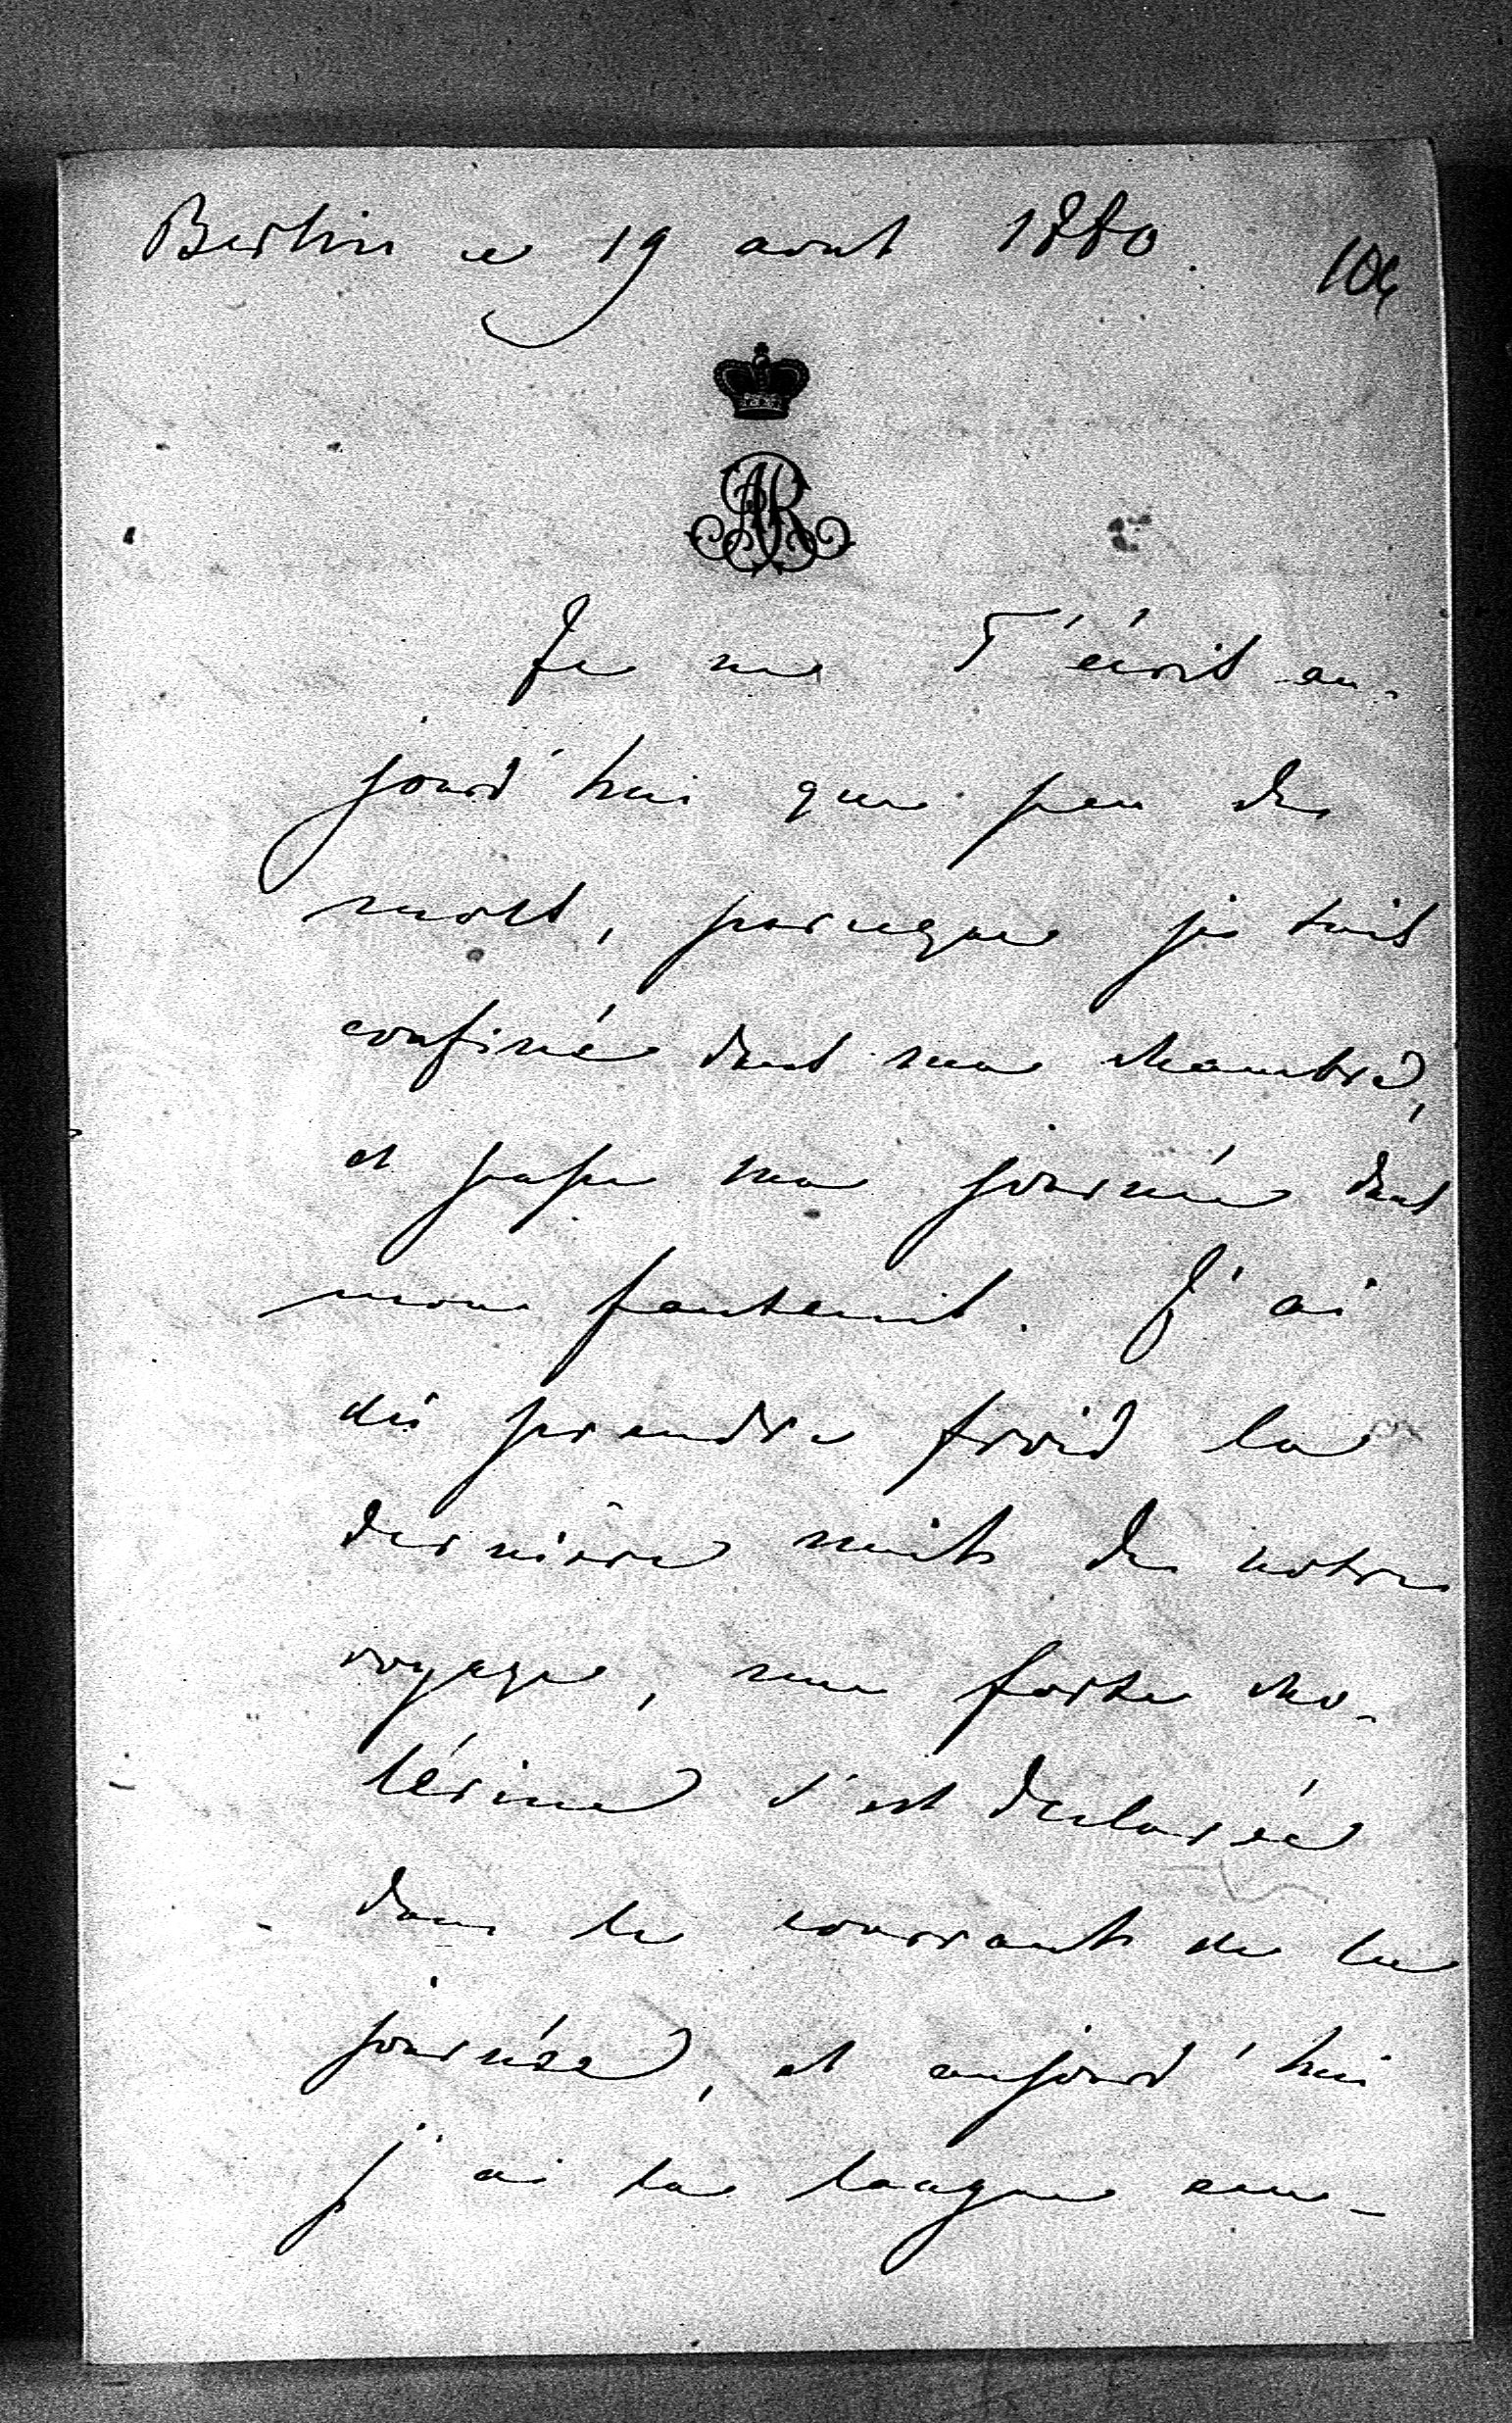 Berlin ce 19 aout 1880.
106
AR
Je ne T'écris au-
jourd'hui que peu de
mots, parceque je suis
confinée dans ma chambre,
et passe ma journée dans
mon fauteuil. J'ai
dû prendre froid la
dernière nuit de notre
voyage, une forte cho-
lérine s'est declarée
dans le courrant de la
journée, et aujourd'hui
j'ai la langue em-